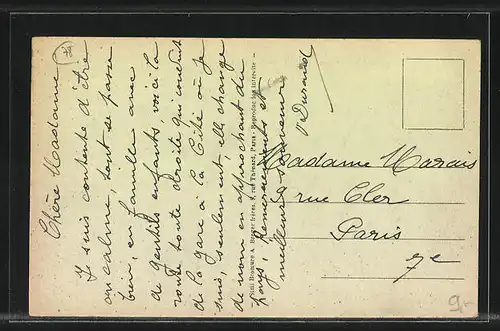 Chère Madame
J'y suis contente d'être
au calme, tout se passe
bien, en famille avec
de gentils enfants, voici la
route toute droite qui conduit
de la gare à la Cité où je
suis, seulement elle change
de nom en approchant du
pays, Remerciements et
meilleur souvenir
V Durand
Madame Marais
9 rue Cler
Paris
7e
9.-